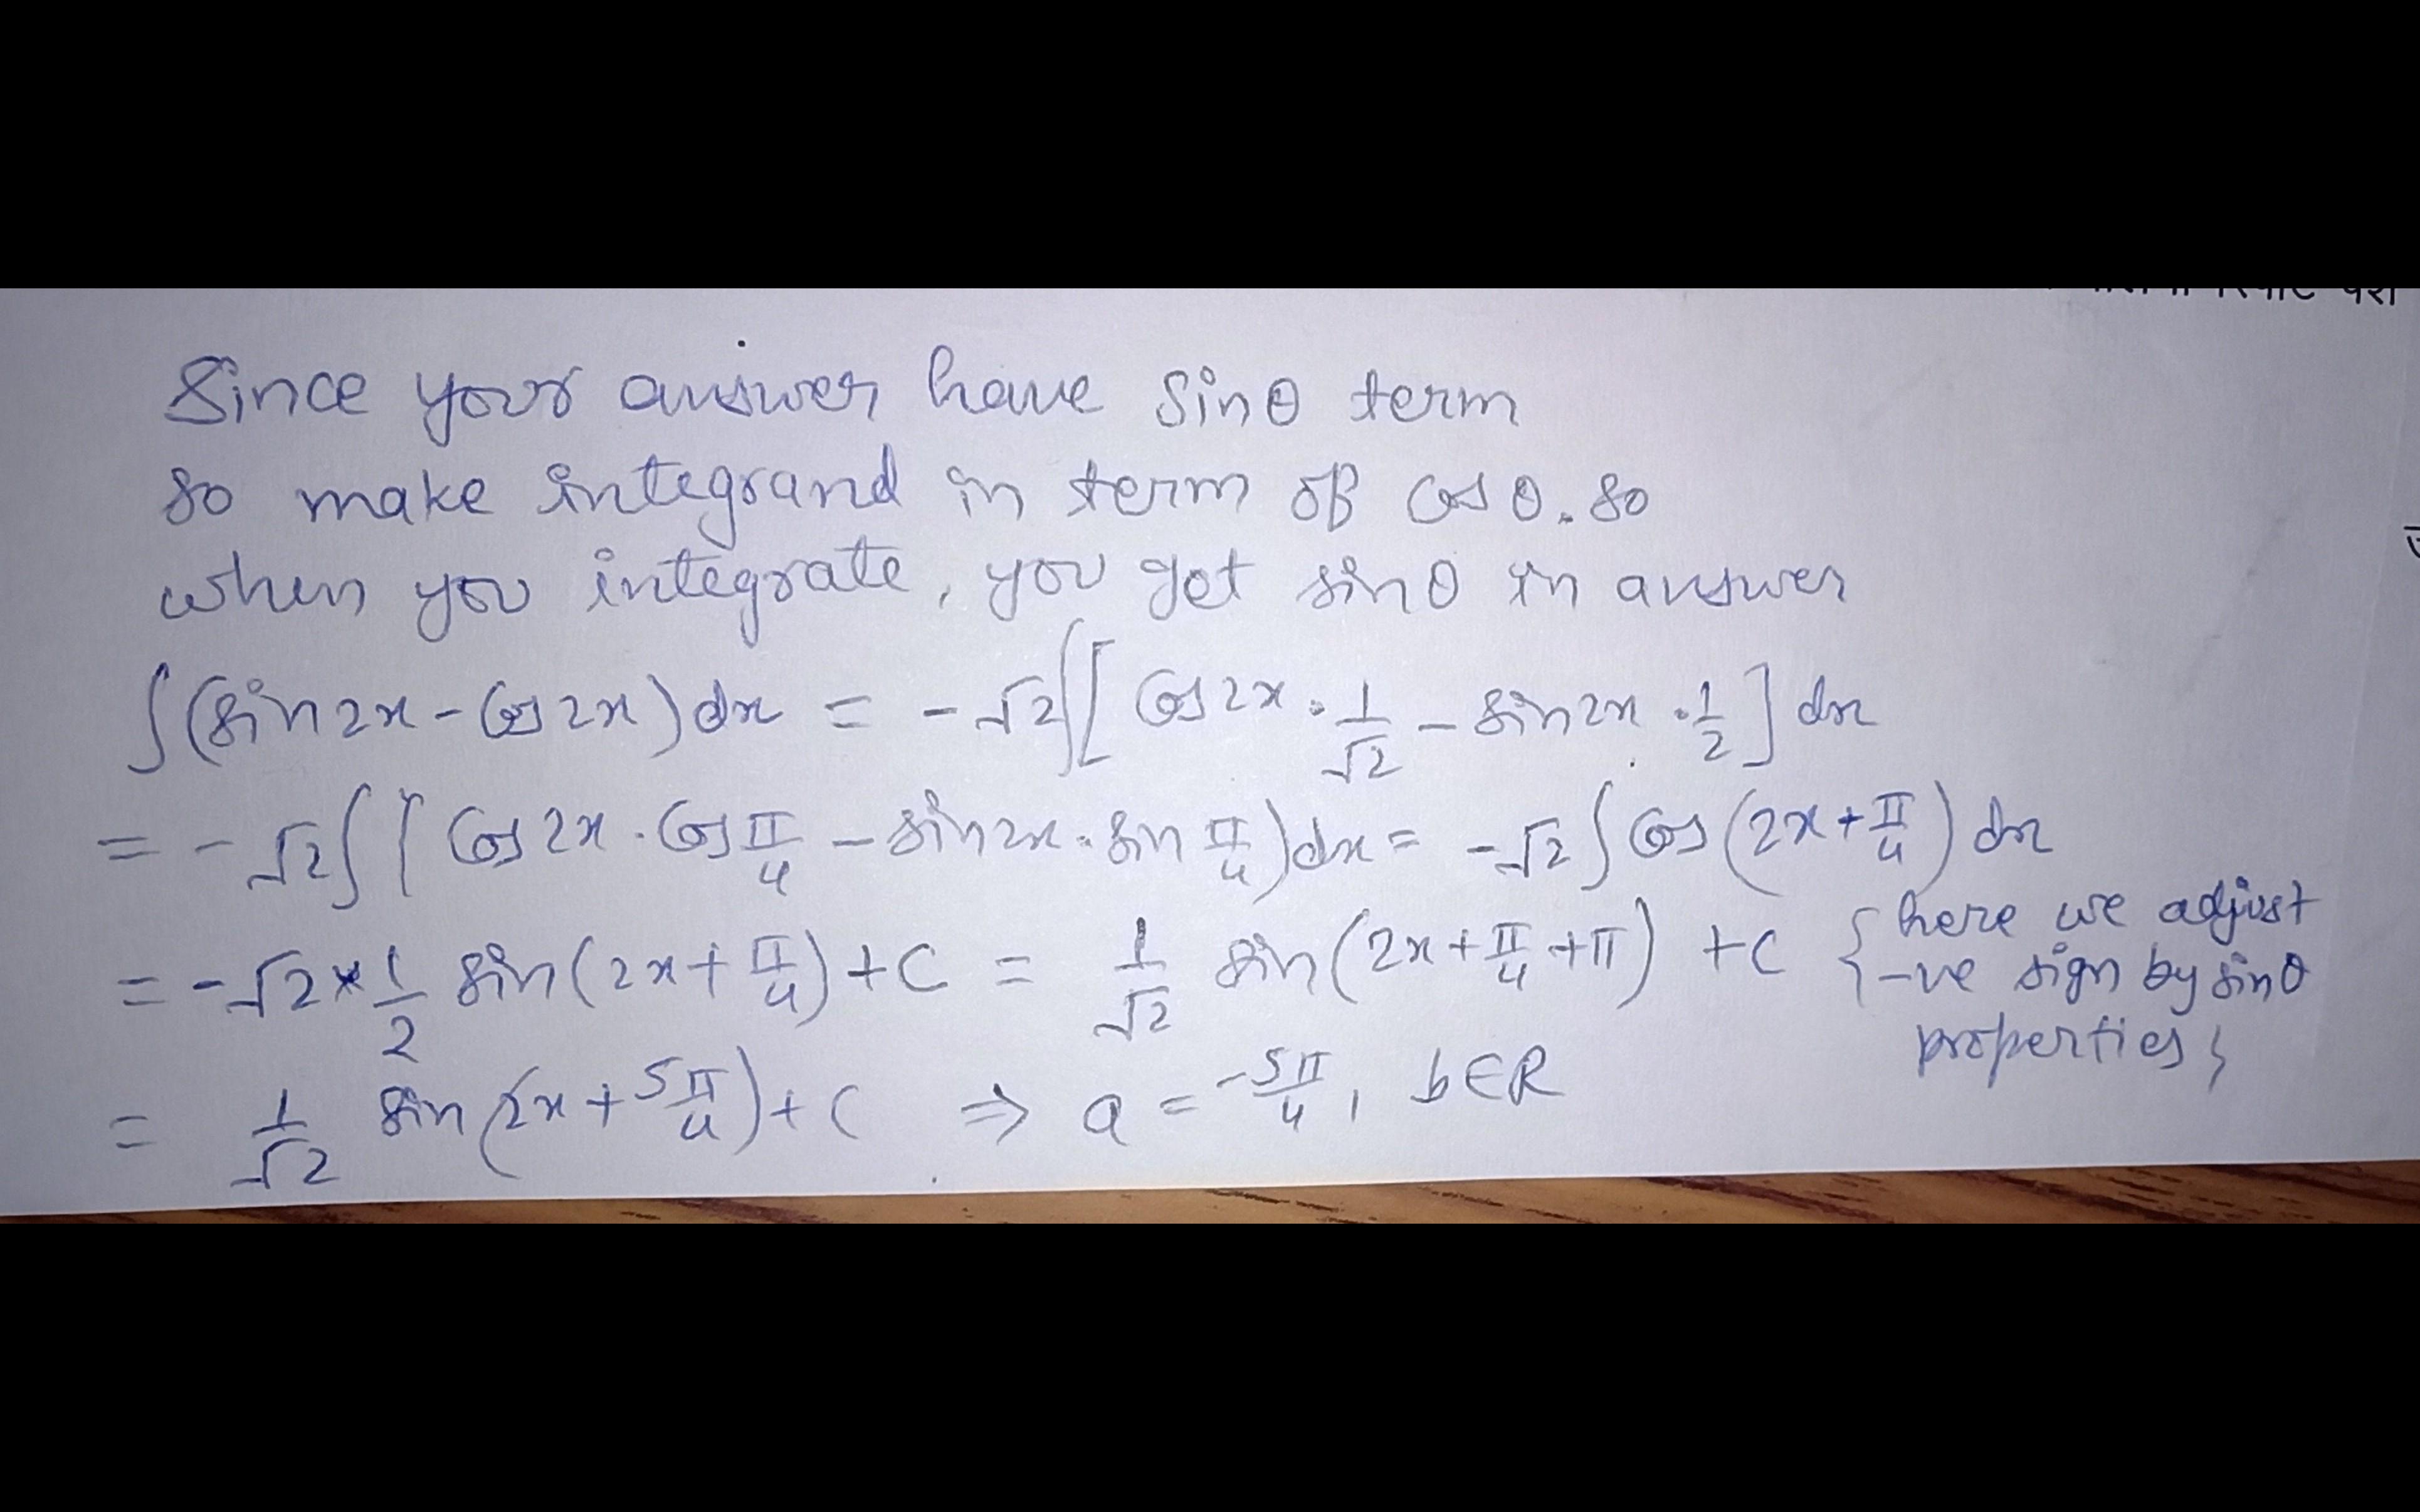 Since your answer have sinθ term
so make integrand in term of cosθ. so
when you integrate, you get sinθ in answer
∫(sin2x-cos2x)dx = -√2∫[cos2x·1/√2 - sin2x·1/2]dx
= -√2∫(cos2x·cosπ/4 - sin2x·sinπ/4)dx = -√2∫cos(2x+π/4)dx
= -√2×1/2 sin(2x+π/4)+C = 1/√2 sin(2x+π/4+π) +C {here we adjust
-ve sign by sinθ
properties}
= 1/√2 sin(2x+5π/4)+C ⇒ a = -5π/4, b∈R